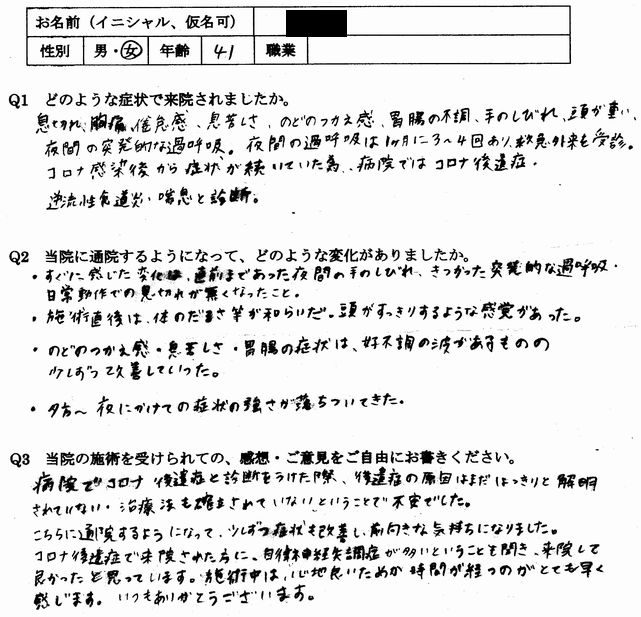 お名前（イニシャル、仮名可）
性別 男・女 年齢 41 職業
Q1 どのような症状で来院されましたか。
息切れ、胸痛、倦怠感、息苦しさ、のどのつかえ感、胃腸の不調、手のしびれ、頭が重い、
夜間の突発的な過呼吸。夜間の過呼吸は1ヶ月に3〜4回あり、救急外来も受診。
コロナ感染後から症状が続いていた為、病院ではコロナ後遺症・
逆流性食道炎・喘息と診断。
Q2 当院に通院するようになって、どのような変化がありましたか。
・すぐに感じた変化は、直前まであった夜間の手のしびれ、きつかった突発的な過呼吸・
日常動作での息切れが無くなったこと。
・施術直後は、体のだるさ等が和らいだ。頭がすっきりするような感覚があった。
・のどのつかえ感・息苦しさ・胃腸の症状は、好不調の波があるものの
少しずつ改善していった。
・夕方〜夜にかけての症状の強さが落ちついてきた。
Q3 当院の施術を受けられての、感想・ご意見をご自由にお書きください。
病院でコロナ後遺症と診断をうけた際、後遺症の原因はまだはっきりと解明
されていない・治療法も確立されていないということで不安でした。
こちらに通院するようになって、少しずつ症状も改善し、前向きな気持ちになりました。
コロナ後遺症で来院された方に、自律神経失調症が多いということも聞き、来院して
良かったと思っています。施術中は、心地良いためか時間が経つのがとても早く
感じます。いつもありがとうございます。